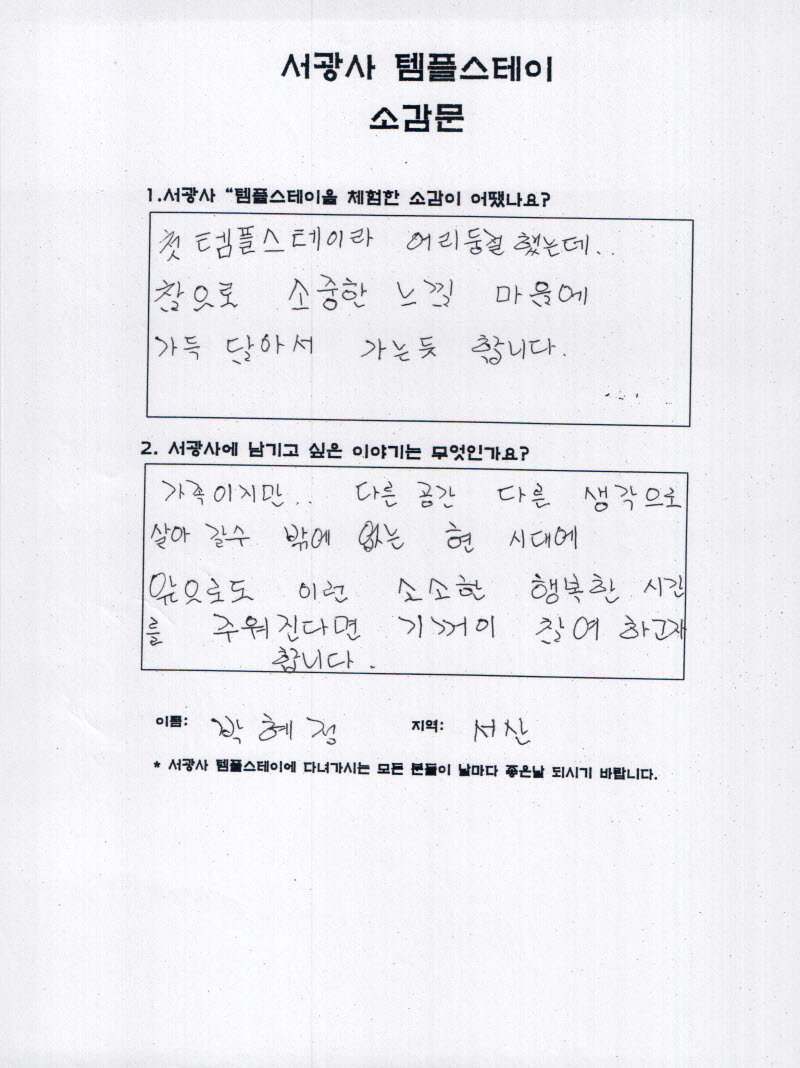 서광사 템플스테이
소감문
1.서광사 “템플스테이을 체험한 소감이 어땠나요?
첫 템플스테이라 어리둥절 했는데..
참으로 소중한 느낌 마음에
가득 담아서 가는듯 합니다.
2. 서광사에 남기고 싶은 이야기는 무엇인가요?
가족이지만.. 다른 공간 다른 생각으로
살아 갈수 밖에 없는 현 시대에
앞으로도 이런 소소한 행복한 시간
를 주워진다면 기꺼이 참여 하고자
합니다.
이름: 박혜정 지역: 서산
* 서광사 템플스테이에 다녀가시는 모든 분들이 날마다 좋은날 되시기 바랍니다.